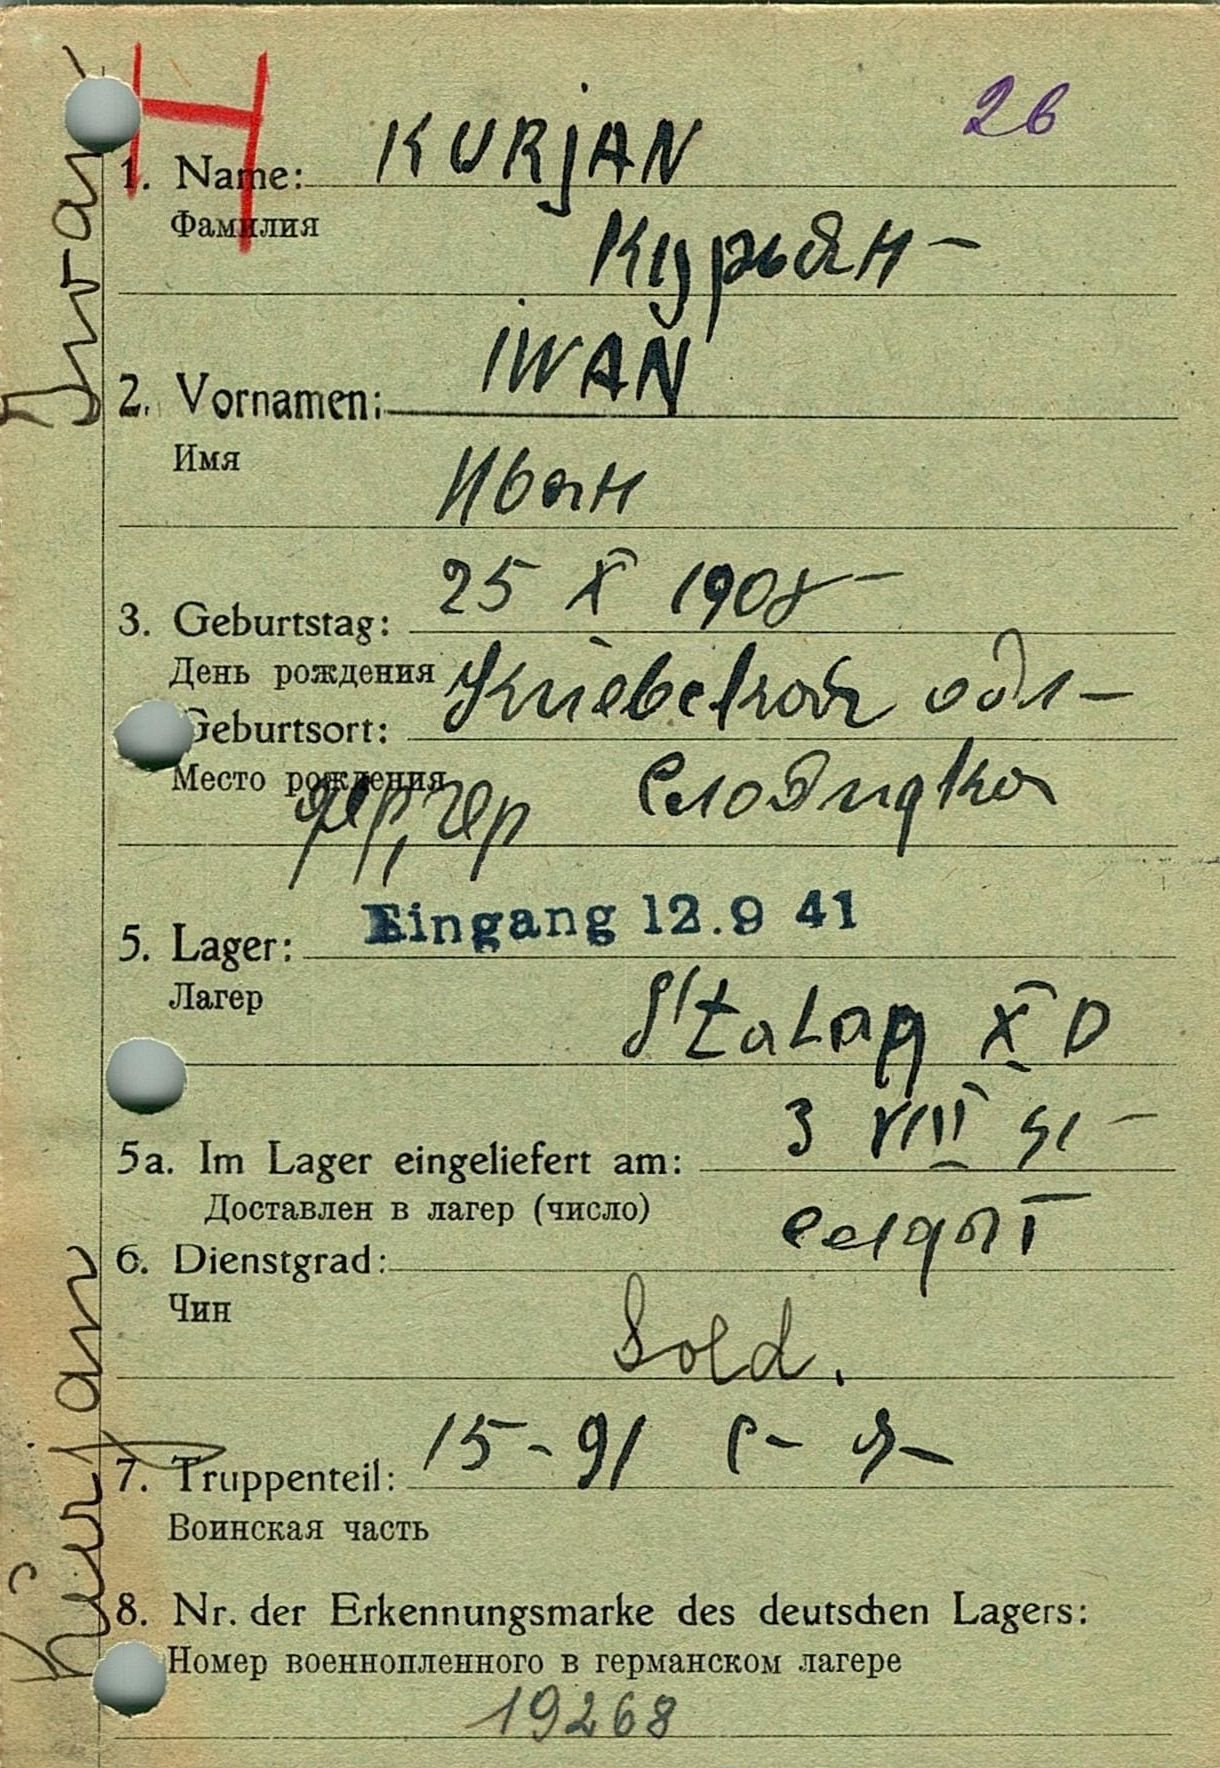 26
1. Name: KURjAN
Фамилия
Курьян -
2. Vornamen: IWAN
Имя
Иван
3. Geburtstag: 25 X 1908 -
День рождения
Geburtsort: обл -
Место рождения
5. Lager: Eingang 12.9 41
Лагер
Stalag X D
5a. Im Lager eingeliefert am: 3 VIII 41 -
Доставлен в лагер (число)
6. Dienstgrad: солдат
Чин
Sold.
7. Truppenteil: 15-91
Воинская часть
8. Nr. der Erkennungsmarke des deutschen Lagers:
Номер военнопленного в германском лагере
19268
Kurjan Iwan